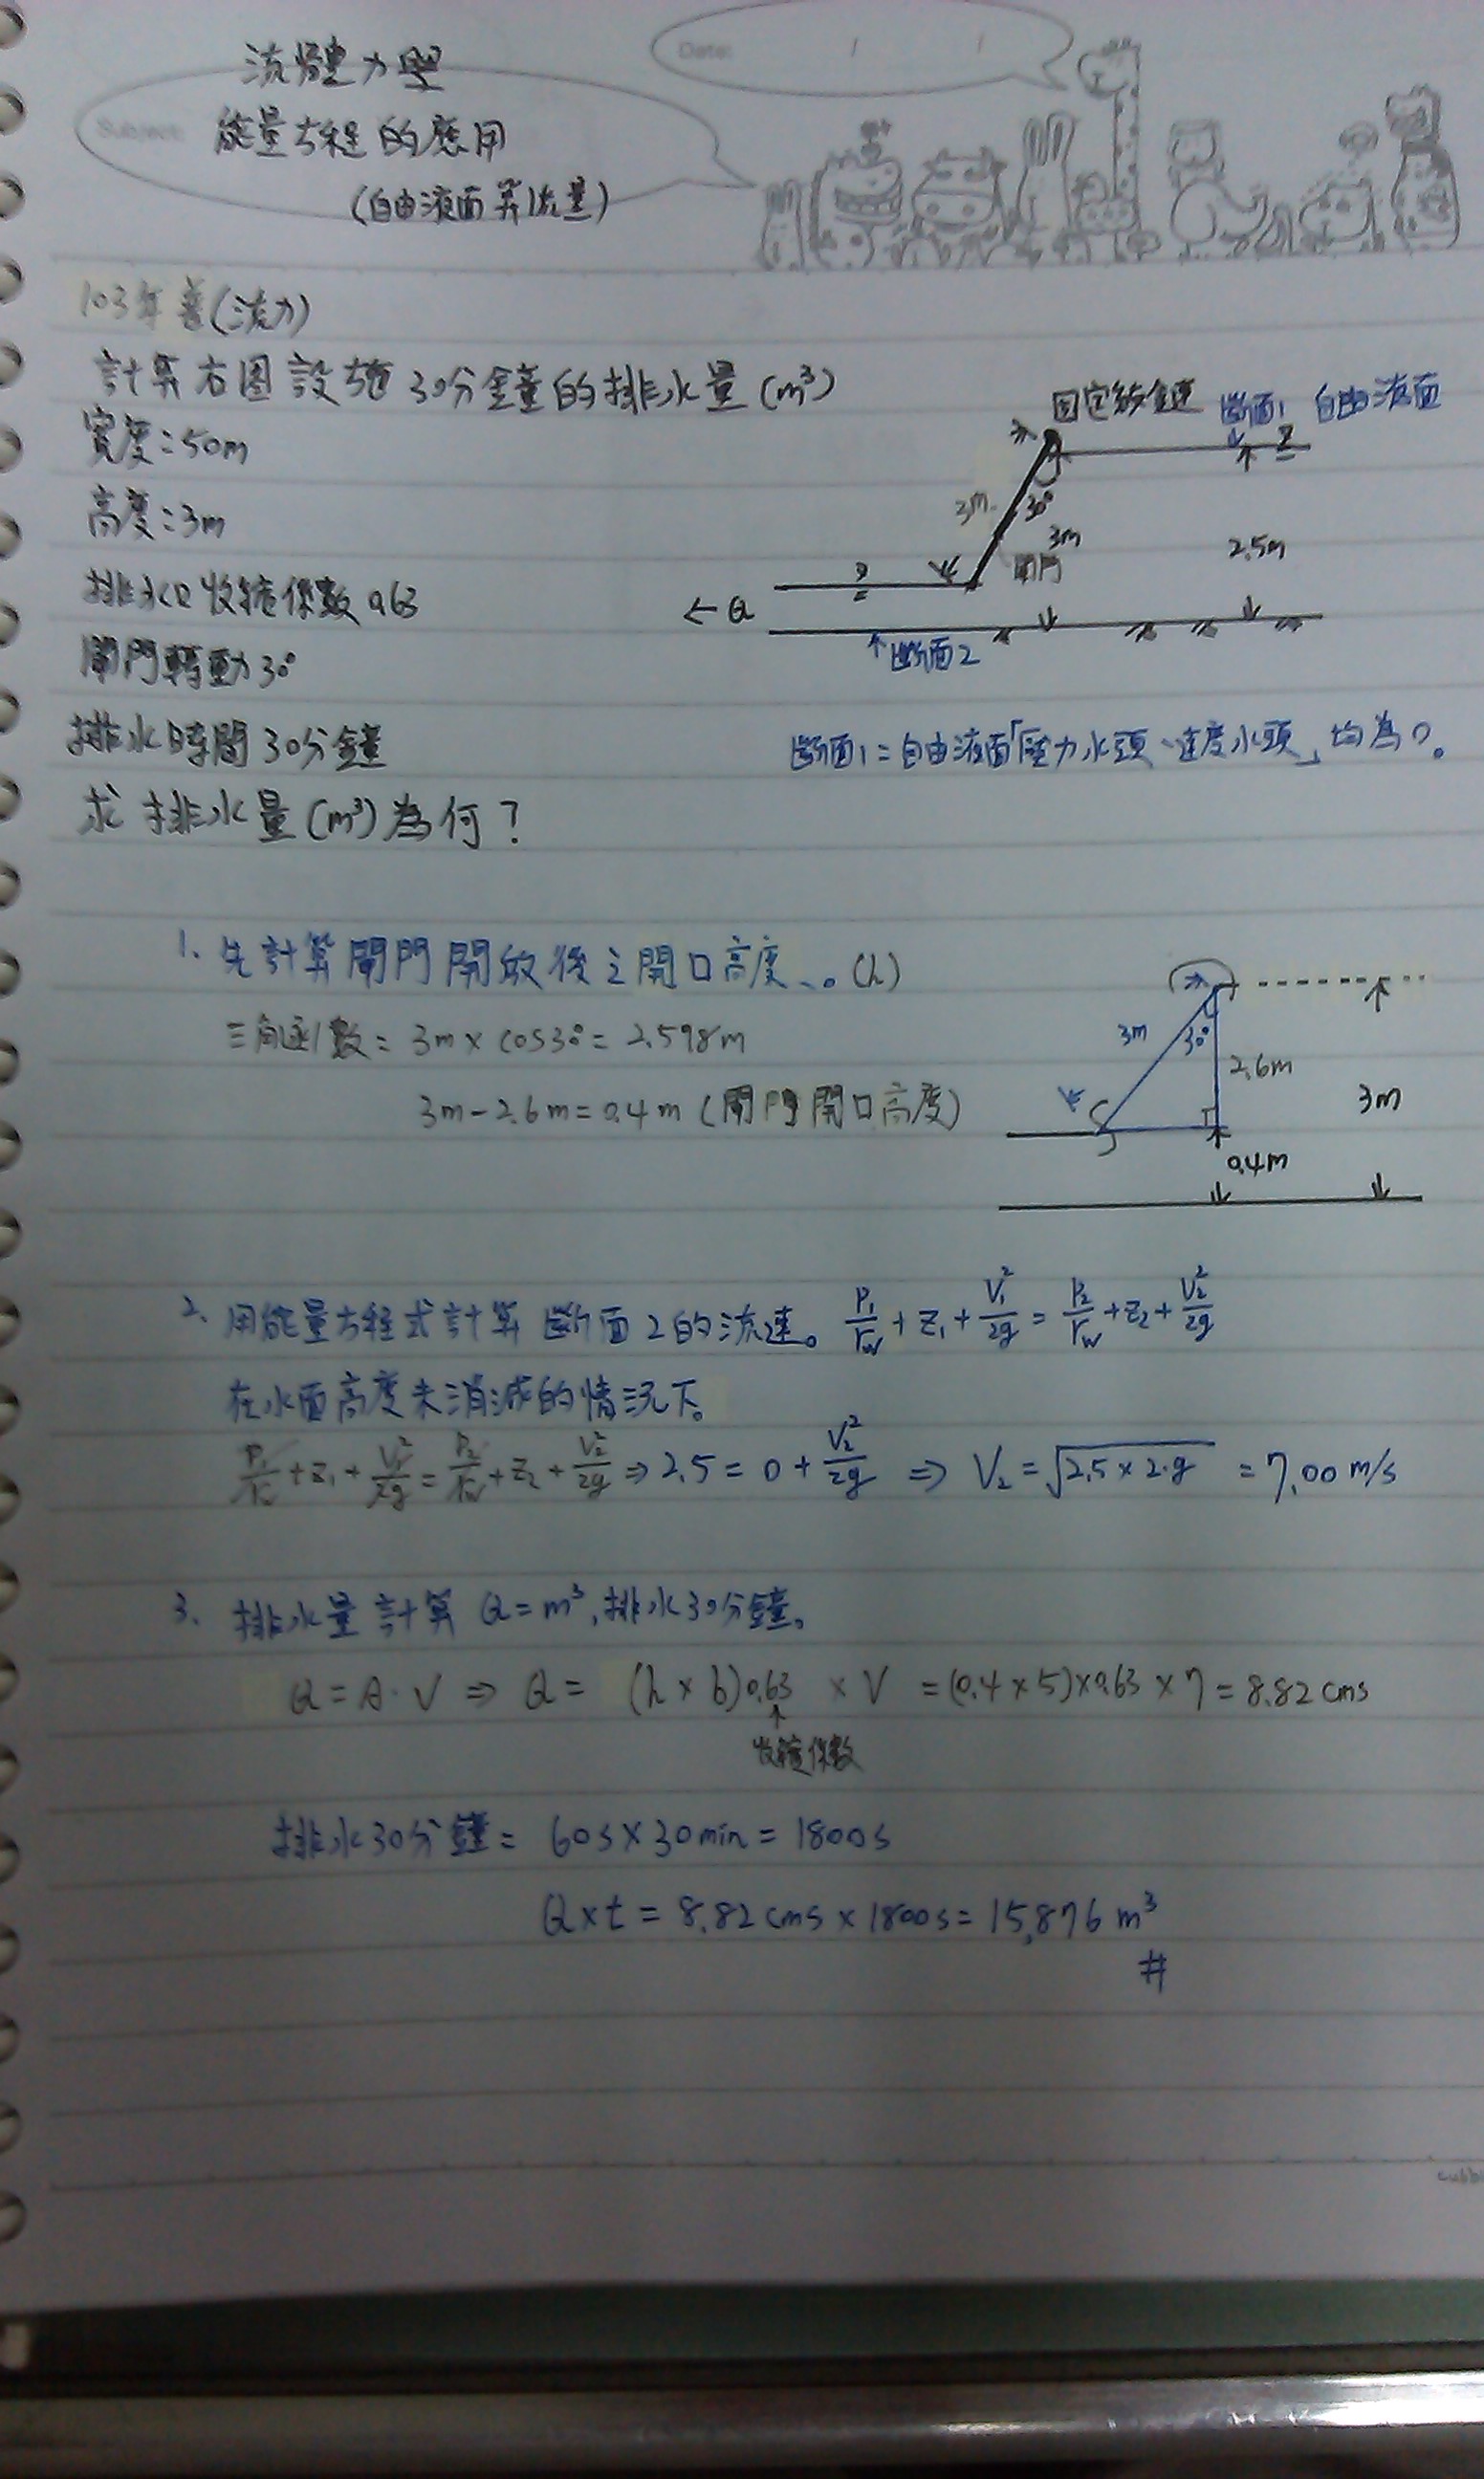 流體力學
Subject:
能量方程的應用
(自由液面算流量)
Date: / /
103年普(流力)
計算右圖設施30分鐘的排水量(m³)
寬度:50m
高度:3m
排水口收縮係數0.63
閘門轉動30°
排水時間30分鐘
求排水量(m³)為何?
固定鉸鏈
斷面1 自由液面
3m
30°
3m
閘門
2.5m
← Q
↑斷面2
斷面1=自由液面「壓力水頭、速度水頭」均為0。
1. 先計算閘門開啟後之開口高度、。(h)
三角函數= 3m × cos30° = 2.598m
3m-2.6m=0.4m (閘門開口高度)
3m
30°
2.6m
3m
0.4m
2. 用能量方程式計算斷面2的流速。 P₁/rw + Z₁ + V₁²/2g = P₂/rw + Z₂ + V₂²/2g
在水面高度未消減的情況下。
P₁/rw + Z₁ + V₁²/2g = P₂/rw + Z₂ + V₂²/2g ⇒ 2.5 = 0 + V₂²/2g ⇒ V₂ = √2.5×2·g = 7.00 m/s
3. 排水量計算 Q=m³,排水30分鐘。
Q=A·V ⇒ Q= (h×b)0.63 × V =(0.4×5)×0.63×7=8.82 cms
↑
收縮係數
排水30分鐘= 60s×30min = 1800s
Q×t = 8.82 cms × 1800s = 15,876 m³
#